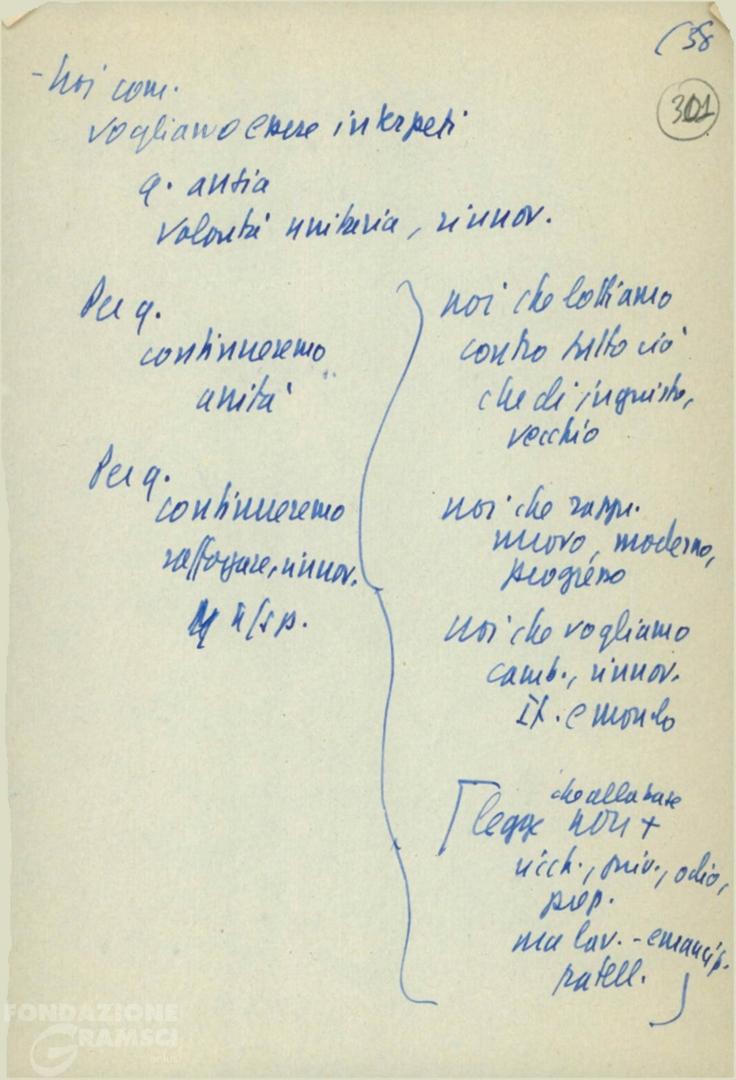 (38
301
- Noi com.
vogliamo essere interpeti
q. ansia
volontà unitaria, rinnov.
Per q.
continueremo
unità
Per q.
continueremo
rafforzare, rinnov.
n/s p.
noi che lottiamo
contro tutto ciò
che di ingiusto,
vecchio
noi che rappr.
nuovo, moderno,
progresso
noi che vogliamo
camb., rinnov.
It. e mondo
che alla base
[legge non +
ricch., priv., odio,
prep.
ma lav. - emancip.
fratell. ]
FONDAZIONE
GRAMSCI